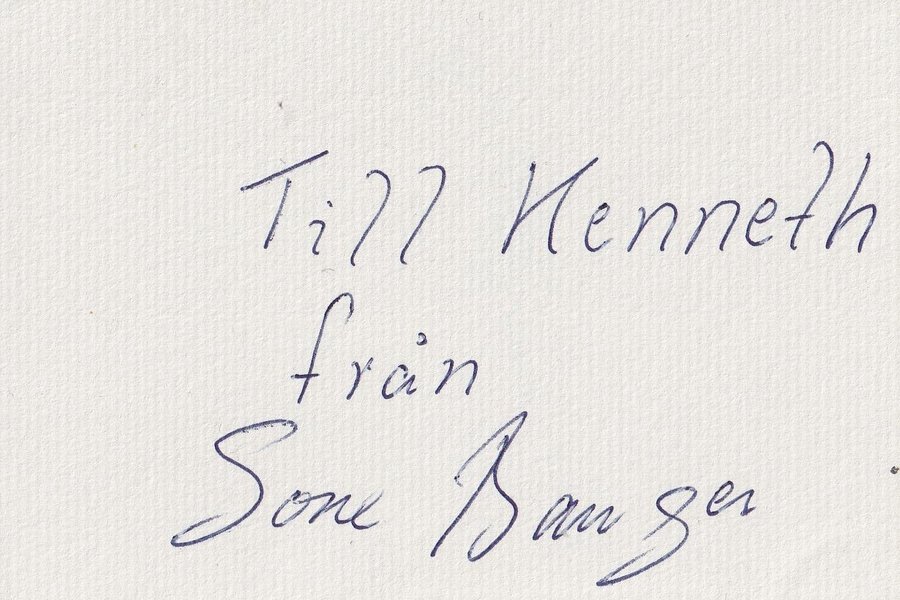 Till Kenneth
från
Sone Banger